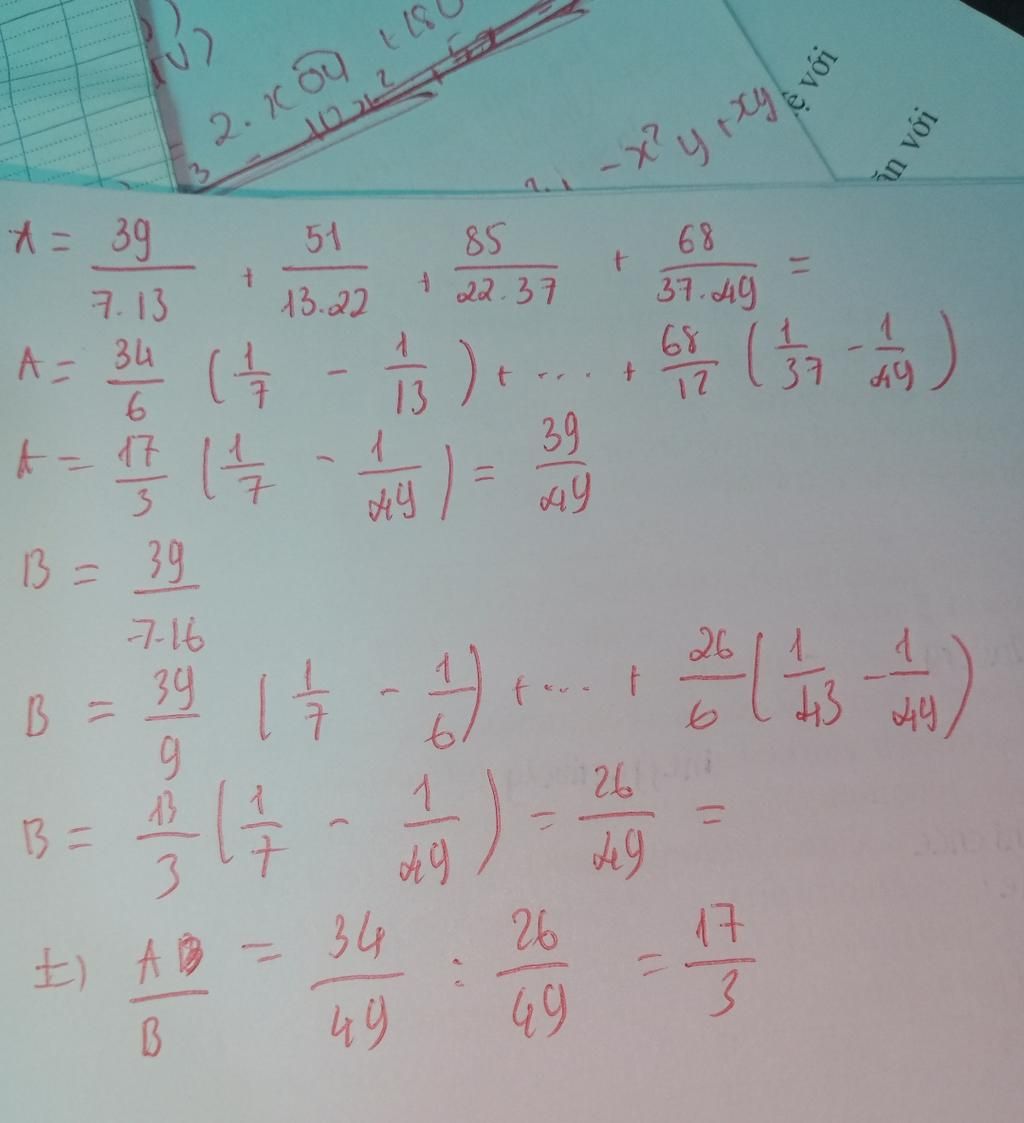 2. x 04 + 180
- 10 x²
3
- x² y + xy
ệ với
ăn với
A = 39/7.13 + 51/13.22 + 85/22.37 + 68/37.49 =
A = 34/6 (1/7 - 1/13) + .... + 68/12 (1/37 - 1/49)
A = 17/3 (1/7 - 1/49) = 39/49
B = 39/7.16
B = 39/9 (1/7 - 1/6) + ... + 26/6 (1/43 - 1/49)
B = 13/3 (1/7 - 1/49) = 26/49 =
±) A/B = 34/49 : 26/49 = 17/3